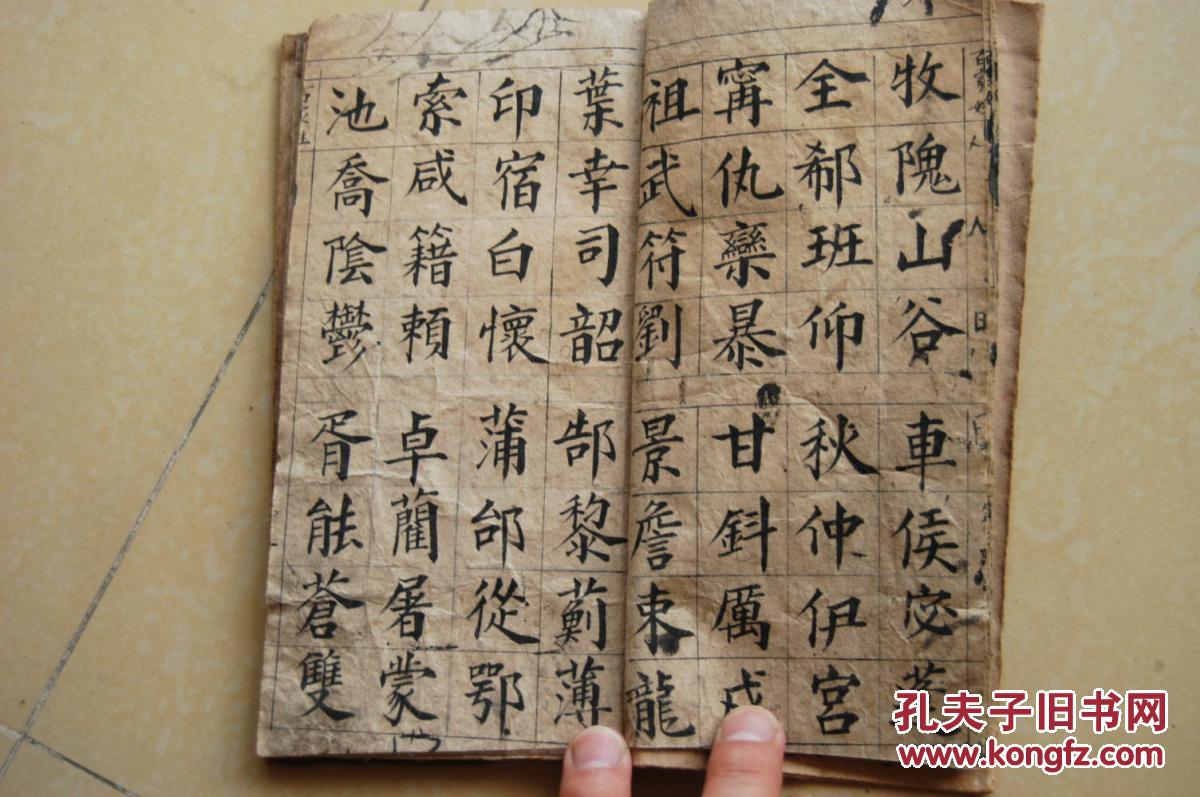 牧隗山谷車侯宓
全郗班仰秋仲伊宮
甯仇欒暴甘鈄厲戎
祖武符劉景詹束龍
葉幸司韶郜黎薊薄
印宿白懷蒲邰從鄂
索咸籍賴卓藺屠蒙
池喬陰鬱胥能蒼雙
孔夫子旧书网
www.kongfz.com